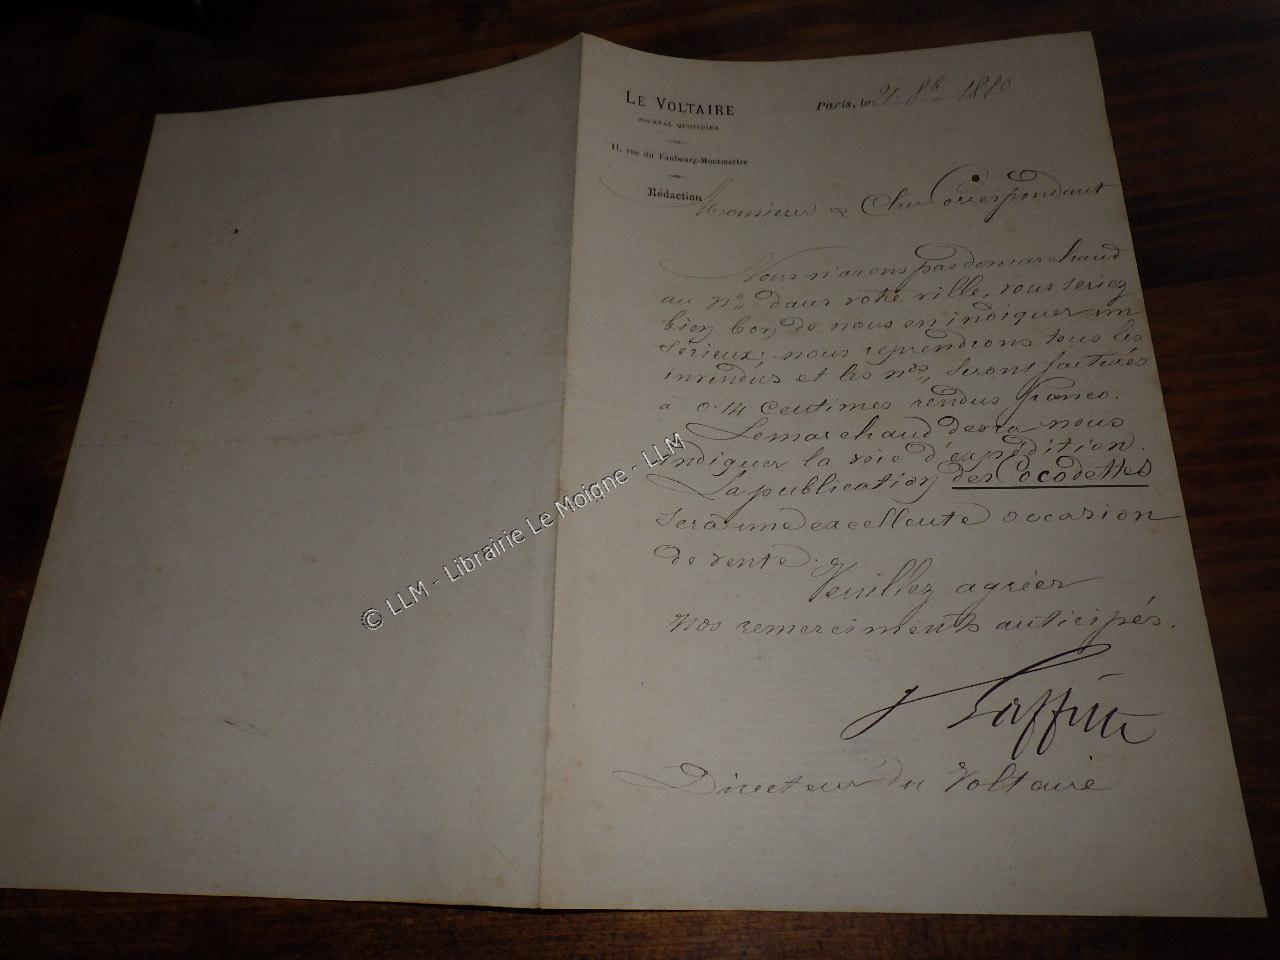 LE VOLTAIRE
JOURNAL QUOTIDIEN
11, rue du Faubourg-Montmartre
Rédaction
Paris, le 21 8bre 1880
Monsieur & Cher Correspondant
Nous n'avons pas de marchand
au no dans votre ville, vous seriez
bien bon de nous en indiquer un
sérieux; nous reprendrons tous les
invendus et les nos seront facturés
à 0.14 centimes rendus franco.
Le marchand devra nous
indiquer la voie d'expédition.
La publication des Cocodettes
sera une excellente occasion
de vente.
Veuillez agréer
nos remerciments anticipés.
J Laffitte
Directeur du Voltaire
© LLM - Librairie Le Moigne - LLM